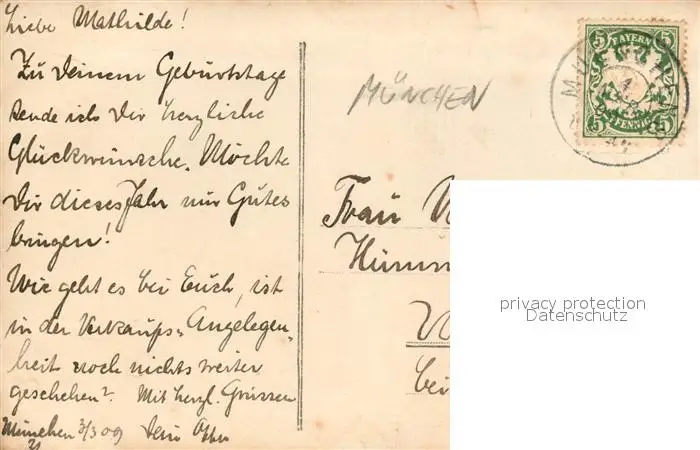 Liebe Mathilde!
Zu Deinem Geburtstage
sende ich Dir herzliche
Glückwünsche. Möchte
Dir dieses Jahr nur Gutes
bringen!
Wie geht es bei Euch, ist
in der Verkaufs=Angelegen=
heit noch nichts weiter
geschehen? Mit herzl. Grüssen
München 3/3 09 Dein
MÜNCHEN
5 BAYERN 5
5 PFENNIG 5
Frau
bei
privacy protection
Datenschutz